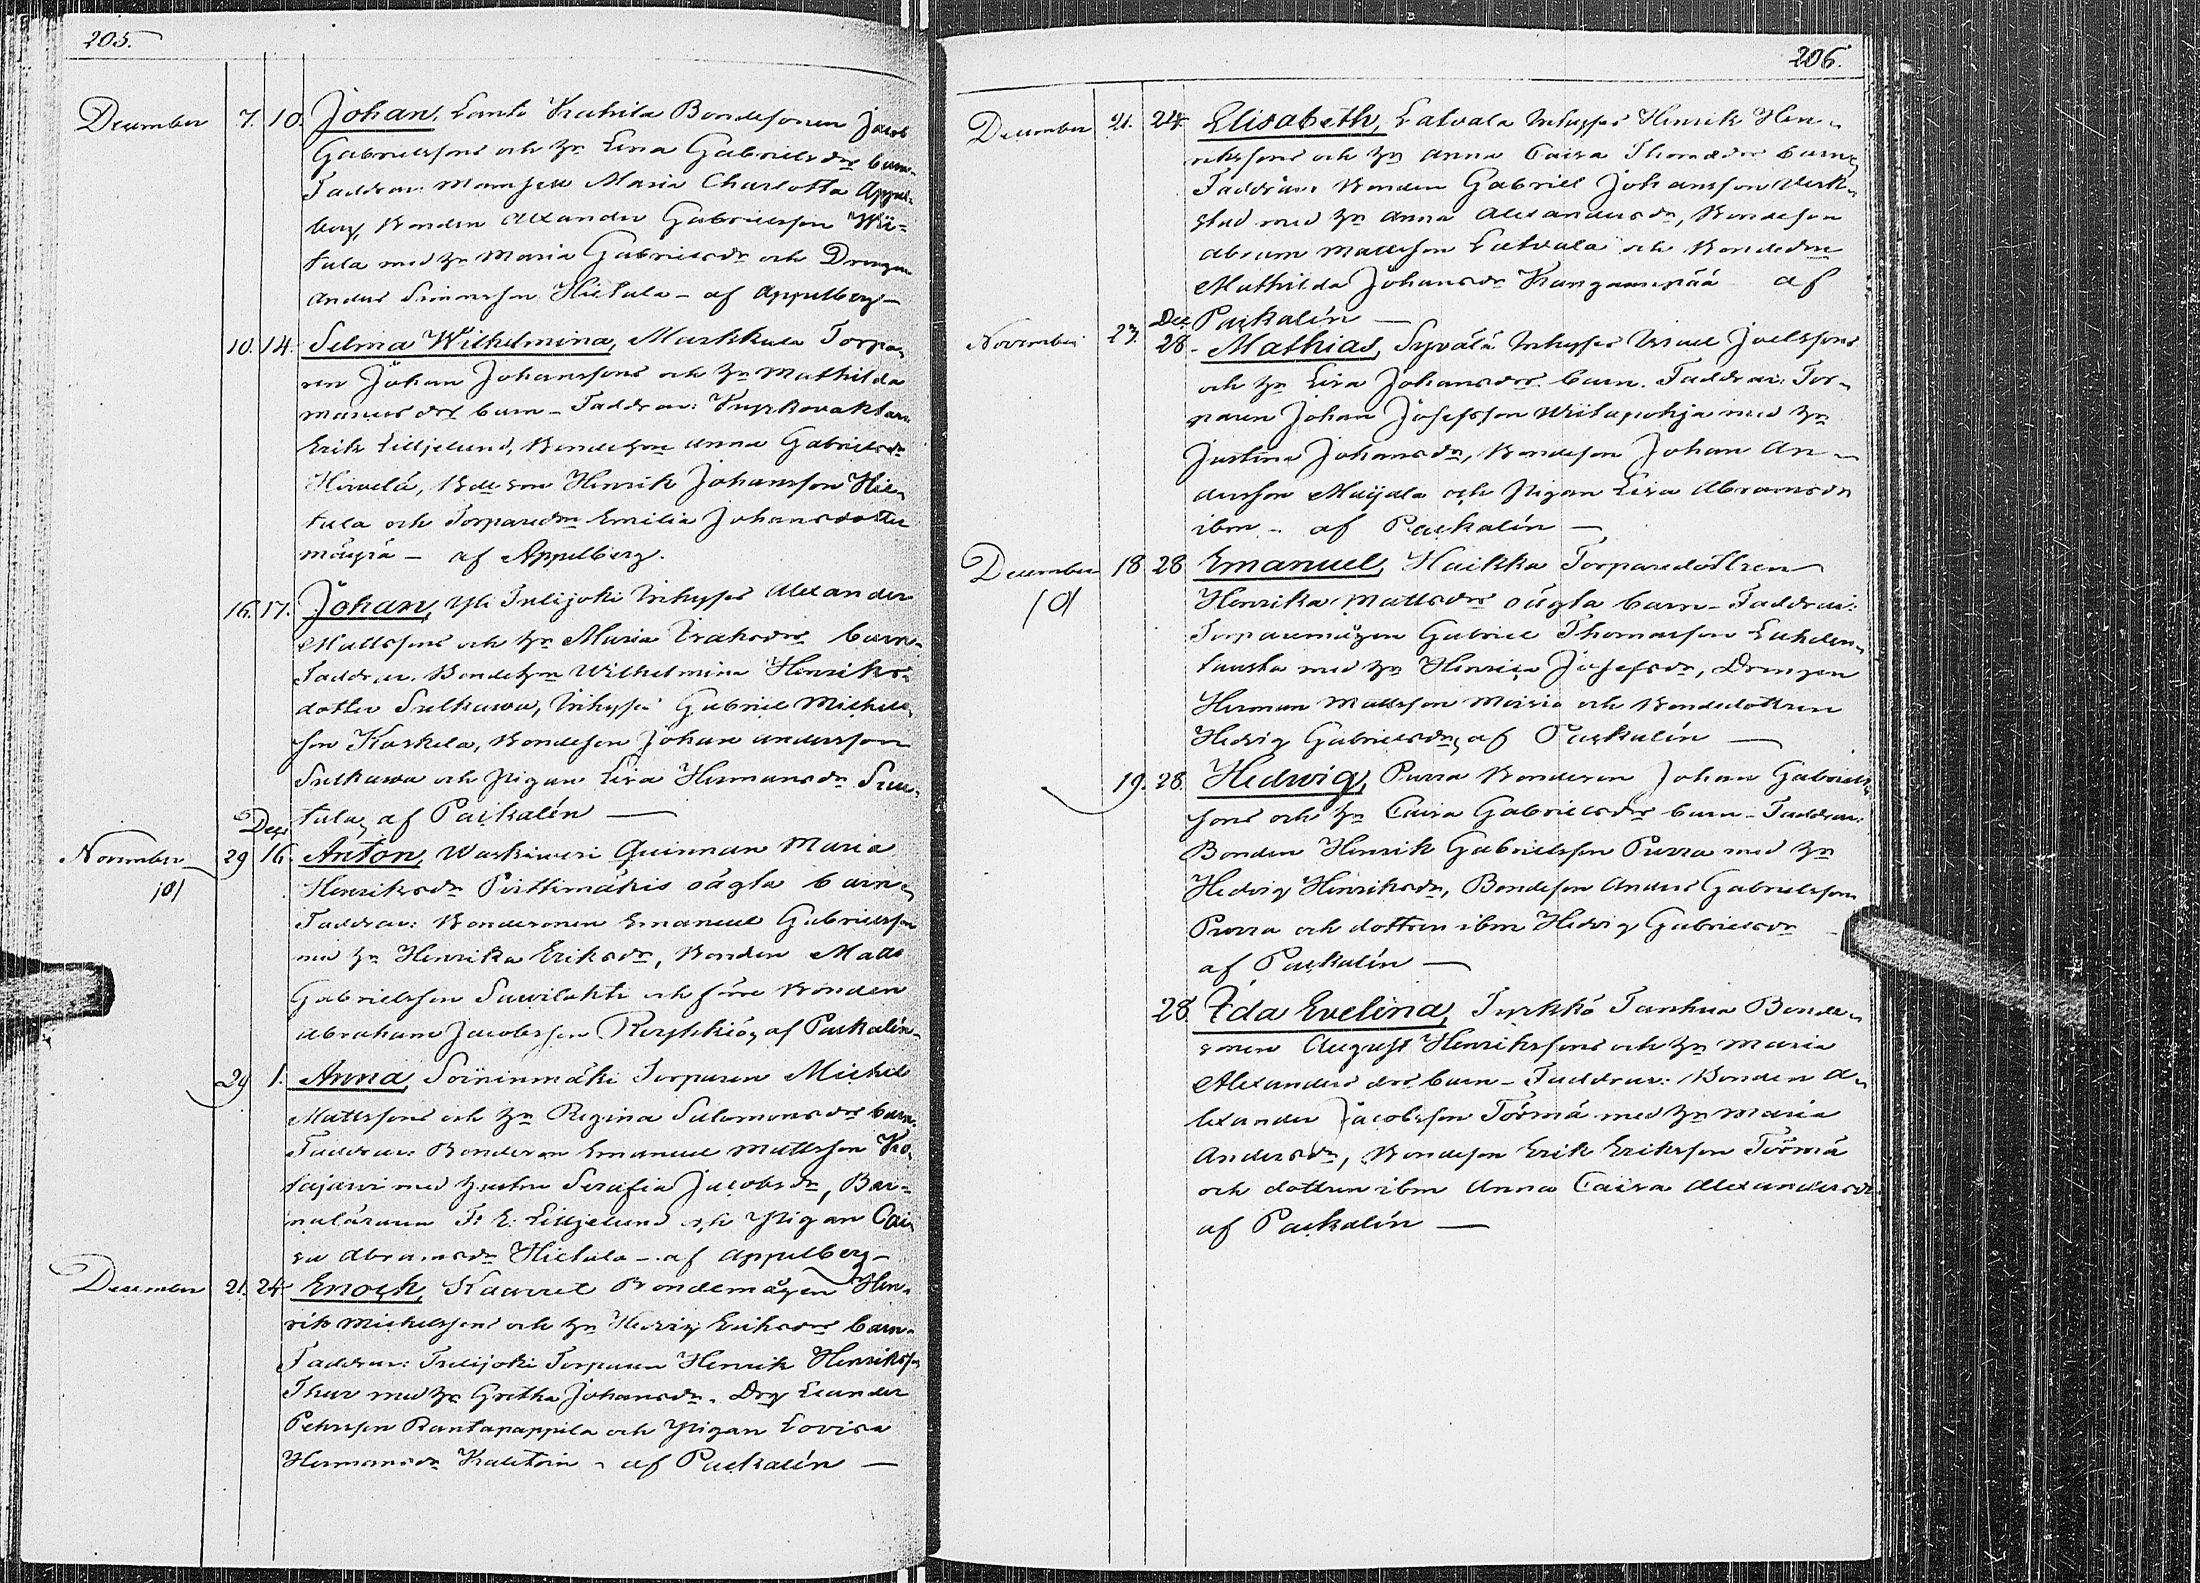 205.
December 7. 10. Johan, Lanto Krahila Bondesonen Jacob
Gabrielssons och hu Lena Gabrielsdrs barn.
Faddrar: Mamsell Maria Charlotta Appel-
berg, Bonden Alexander Gabrielsson Wii-
tala med hu Maria Gabrielsdr och Drengen
Anders Simonsson Hietala – af Appelberg –
10. 14. Selma Wilhelmina, Markkula Torpa-
ren Johan Johanssons och hu Mathilda
barn – Faddrar: Kyrkovaktaren
Erik Lilljelund, Anna Gabrielsdr
Henrik Johansson Hie-
tala och Emilia Johansdotter
– af Appelberg.
16. 17. Johan, Yli Tulijoki Inhyses Alexander
Mattssons och hu Maria barn.
Faddrar. Wilhelmina Henriks-
dotter Sulkawa, Inhyses Gabriel Michels-
son Kaskela, Bondeson Johan Andersson
Sulkawa och Pigan Lisa Hermansdr
af Paskalén —
November 29 Dec. 16. Anton, Qvinnan Maria
Henriksdr oägta barn
Faddrar: Bondesonen Emanuel Gabrielsson
med hu Henrika Eriksdr, Bonden Matts
Gabrielsson Savilahti och förre Bonden
Abraham Jacobsson af Paskalén
29 1. Anna, Torparen Michel
Mattssons och hu Regina Salomonsdrs barn.
Faddrar: Bondeson Emanuel Mattsson Ko-
tajarvi med hustru Serafia Jacobsdr, Bar-
naläraren F. E. Lilljelund och Pigan Cai-
sa Abramsdr Hietala – af Appelberg –
December 21. 24 Enoch, Kauret Bondemågen Hen-
rik Michelssons och hu Hedvig Eriksdrs barn.
Faddrar: Tulijoki Torparen Henrik Henriksson
med hu Gretha Johansdr. Drg Leander
Pehrsson Rantapappila och Pigan Lovisa
Hermansdr – af Paskalén —
206.
December 21. 24. Elisabeth, Latvala Inhyses Henrik Hen-
rikssons och hu Anna Caisa Thomædrs barn
Faddrar: Bonden Gabriel Johansson
med hu Anna Alexandersdr, Bondeson
Abram Mattsson Latvala och Bondedn
Mathilda Johansdr Kangaanpää af
Paskalén —
November 23. Dec. 28. Mathias, Syvälä Inhyses Israel Joelssons
och hu Lisa Johansdrs barn. Faddrar: Tor-
paren Johan Josefsson Wiitapohja med hu
Justina Johansdr, Bondeson Johan An-
dersson Maijala och Pigan Lisa Abramsdr
ibm – af Paskalén —
December 18 28 Emanuel, Haikka Torparedottren
Henrika Mattsdrs oägta barn – Faddrar:
Torparemågen Gabriel Thomasson Lahden-
tausta med hu Henrica Josefsdr, Drengen
Herman Mattsson och Bondedottren
Hedvig Gabrielsdr, af Paskalén —
19. 28. Hedwig, Purra Bondeson Johan Gabriels-
sons och hu Caisa Gabrielsdrs barn – Faddrar:
Bonden Henrik Gabrielsson Purra med hu
Hedvig Henriksdr, Bondeson Anders Gabrielsson
Purra och dottren ibm Hedvig Gabrielsdr
af Paskalén —
28. Ida Evelina, Tyrkkö Tanhua Bonde-
sonen August Henrikssons och hu Maria
Alexanders drs barn – Faddrar: Bonden A-
lexander Jacobsson Törmä med hu Maria
Andersdr, Bondeson Erik Eriksson Törmä
och dottren ibm Anna Caisa Alexandersdr
af Paskalén —